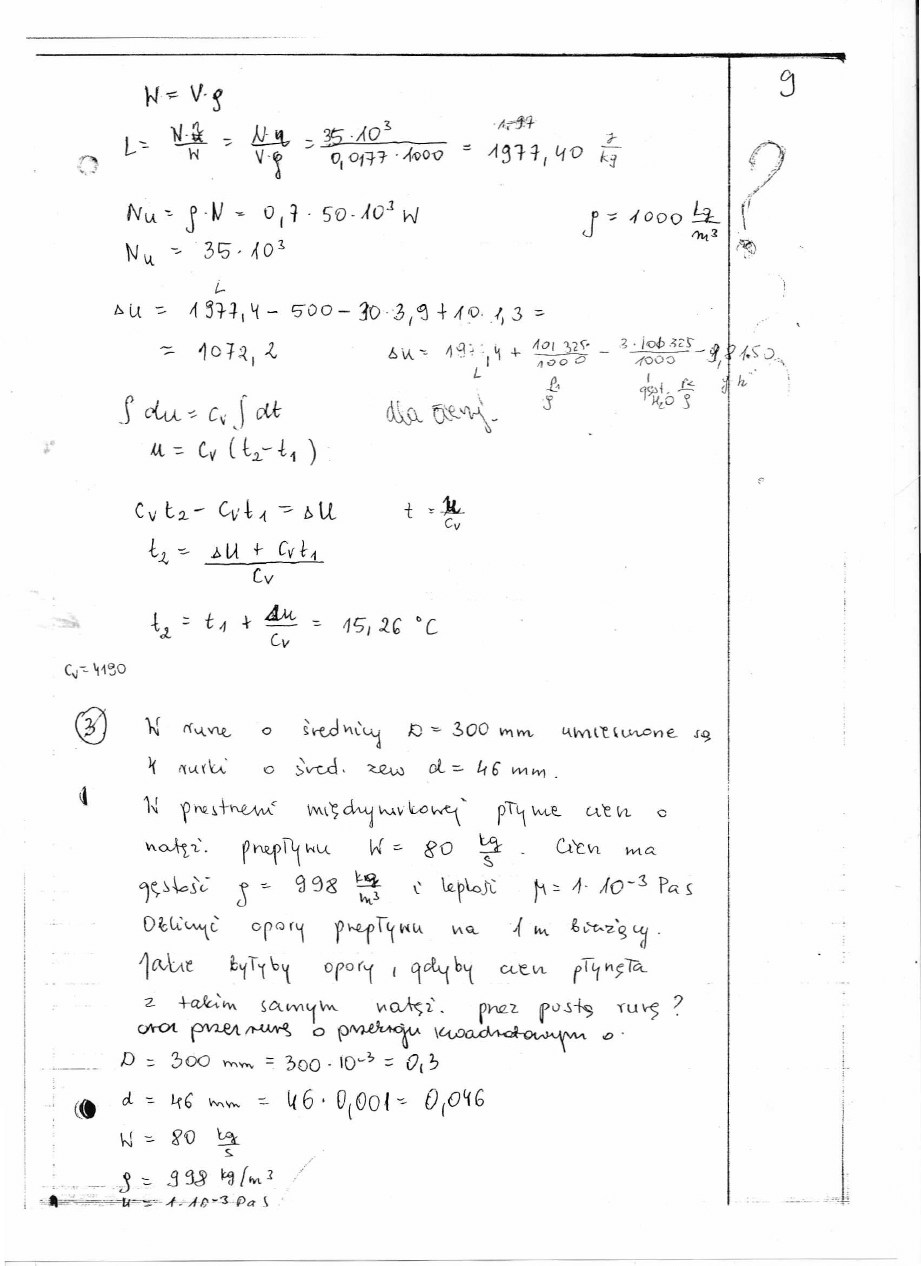 9
W = V·ρ
L = N·η/W = N·η/V·ρ = 35·10³/0,0177·1000 = 1977,40 J/kg
?
Nu = ρ·N = 0,7·50·10³ W ρ = 1000 kg/m³
Nu = 35·10³
L
Δu = 1977,4 – 500 – 30·3,9 + 10·1,3 =
= 1072,2 Δu = 1977,4 + 101 325/1000 – 3·100 325/1000 – 9,81·50
L p₁/ρ gęst. H₂O p₂/ρ g h
∫ du = cv ∫ dt dla cieczy.
u = cv (t₂–t₁)
cvt₂ – cvt₁ = Δu t = u/cv
t₂ = Δu + cvt₁/cv
t₂ = t₁ + Δu/cv = 15,26 °C
cv = 4190
③ W rurze o średnicy D = 300 mm umieszczone są
4 rurki o śred. zew d = 46 mm.
W przestrzeni międzyrurkowej płynie ciecz o
natęż. przepływu W = 80 kg/s. Ciecz ma
gęstość ρ = 998 kg/m³ i lepkość μ = 1·10⁻³ Pas
Obliczyć opory przepływu na 1 m bieżący.
Jakie byłyby opory, gdyby ciecz płynęła
z takim samym natęż. przez pustą rurę?
oraz przez rurę o przekroju kwadratowym o.
D = 300 mm = 300·10⁻³ = 0,3
d = 46 mm = 46·0,001 = 0,046
W = 80 kg/s
ρ = 998 kg/m³
μ = 1·10⁻³ Pas